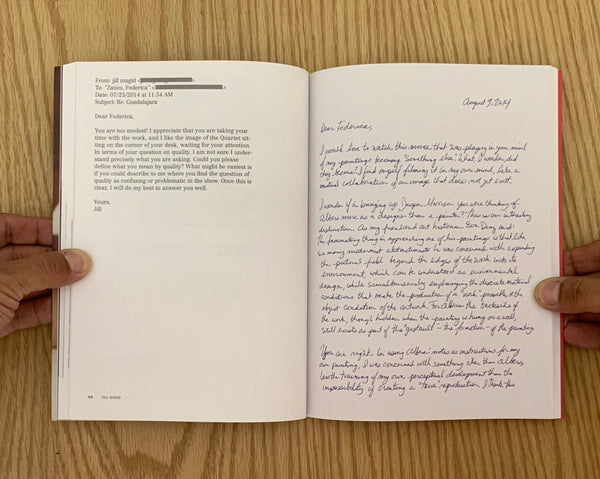 From: jill magid <
To: "Zanco, Federica" <
Date: 07/25/2014 at 11:54 AM
Subject: Re: Guadalajara
Dear Federica,
You are too modest! I appreciate that you are taking your
time with the work, and I like the image of the Quartet sit-
ting on the corner of your desk, waiting for your attention.
In terms of your question on quality, I am not sure I under-
stand precisely what you are asking. Could you please
define what you mean by quality? What might be easiest is
if you could describe to me where you find the question of
quality as confusing or problematic in the show. Once this is
clear, I will do my best to answer you well.
Yours,
Jill
JILL MAGID
August 9, 2014
Dear Federica,
I would love to watch this movie that was playing in your mind
of my paintings becoming "something else." What, I wonder, did
they become? I find myself filming it in my own mind, like a
mutual collaboration of an image that does not yet exist.
I wonder if in bringing up Jasper Morrison you were thinking of
Albers more as a designer than a painter? There is an interesting
distinction. As my friend and art historian Tom Day said:
The fascinating thing in approaching one of his paintings is that like
so many modernist abstractionists he was concerned with expanding
the pictorial field beyond the edges of the work into its
environment, which can be understood as environmental
design, while simultaneously emphasizing the discrete material
conditions that make the production of a "work" possible, or the
object condition of the artwork. For Albers the backside of
the work, though hidden when the painting is hung on a wall,
still exists as part of the "gestalt" - the function - of the painting.
You are right. In using Albers' notes as instructions for my
own painting, I was concerned with something other than Albers,
with training of my own perceptual development than the
impossibility of creating a "true" reproduction. I think this